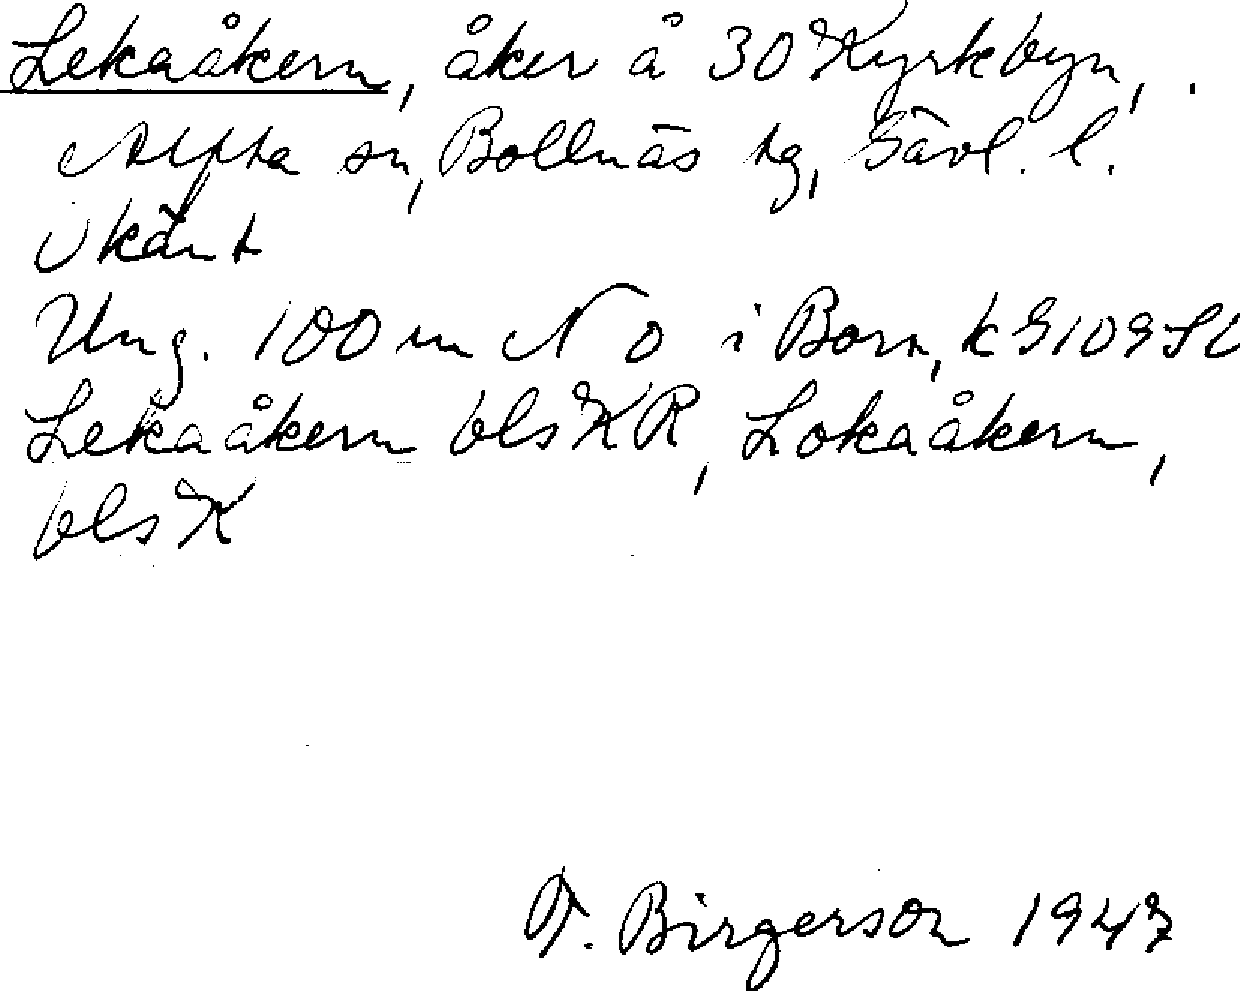 Lekaåkern, åker å 30 Kyrkbyn,
Alfta sn, Bollnäs tg, Gävl. l.
Okänt
Ung. 100 m N o i Born, k 9109 SV
Lekaåkern bls KR, Lokaåkern,
bls K
T. Birgerson 1947